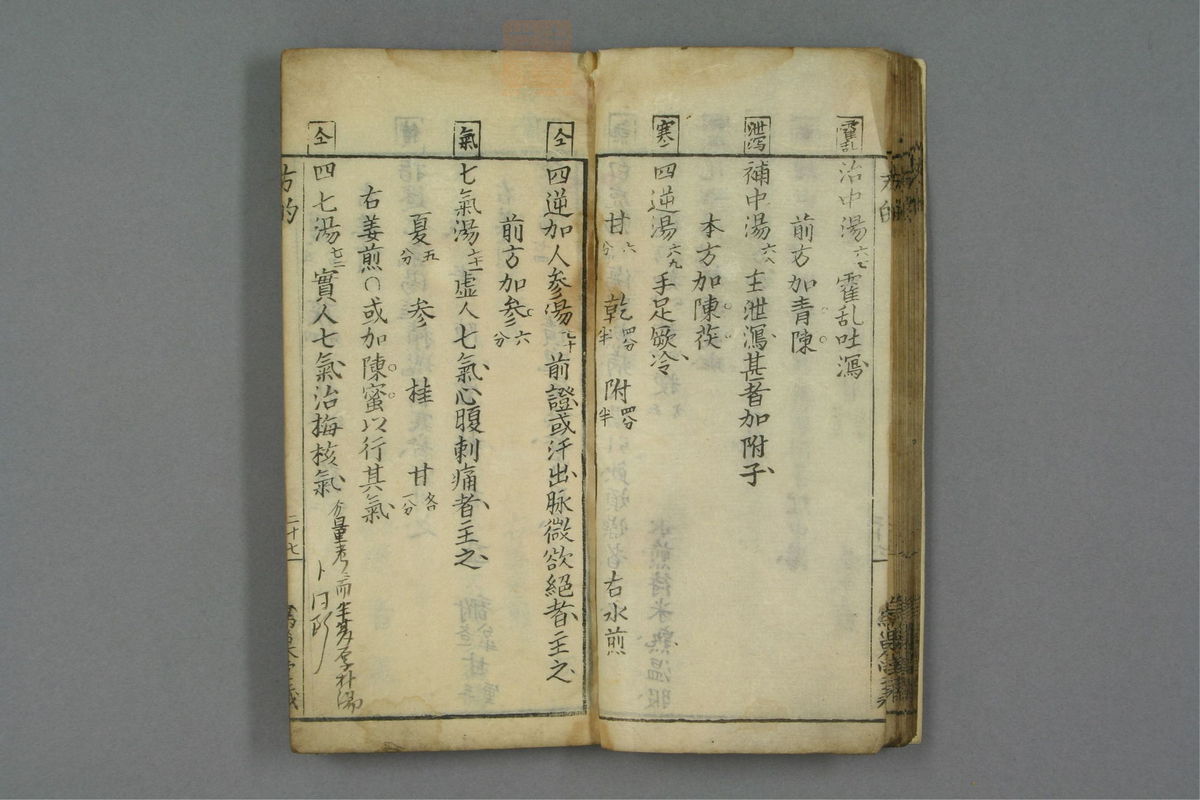 霍乱
治中湯六七霍乱吐瀉
前方加青陳
泄瀉
補中湯六八主泄瀉甚者加附子
本方加陳茯
寒
四逆湯六九手足厥冷
甘六分 乾四分半 附四分半 右水煎
仝
四逆加人参湯七十前證或汗出脉微欲絕者主之
前方加参六分
氣
七氣湯七一虚人七氣心腹刺痛者主之
夏五分 参 桂 甘各一分
右姜煎○或加陳蜜以行其氣
仝
四七湯七二實人七氣治梅核氣
方的
二十七